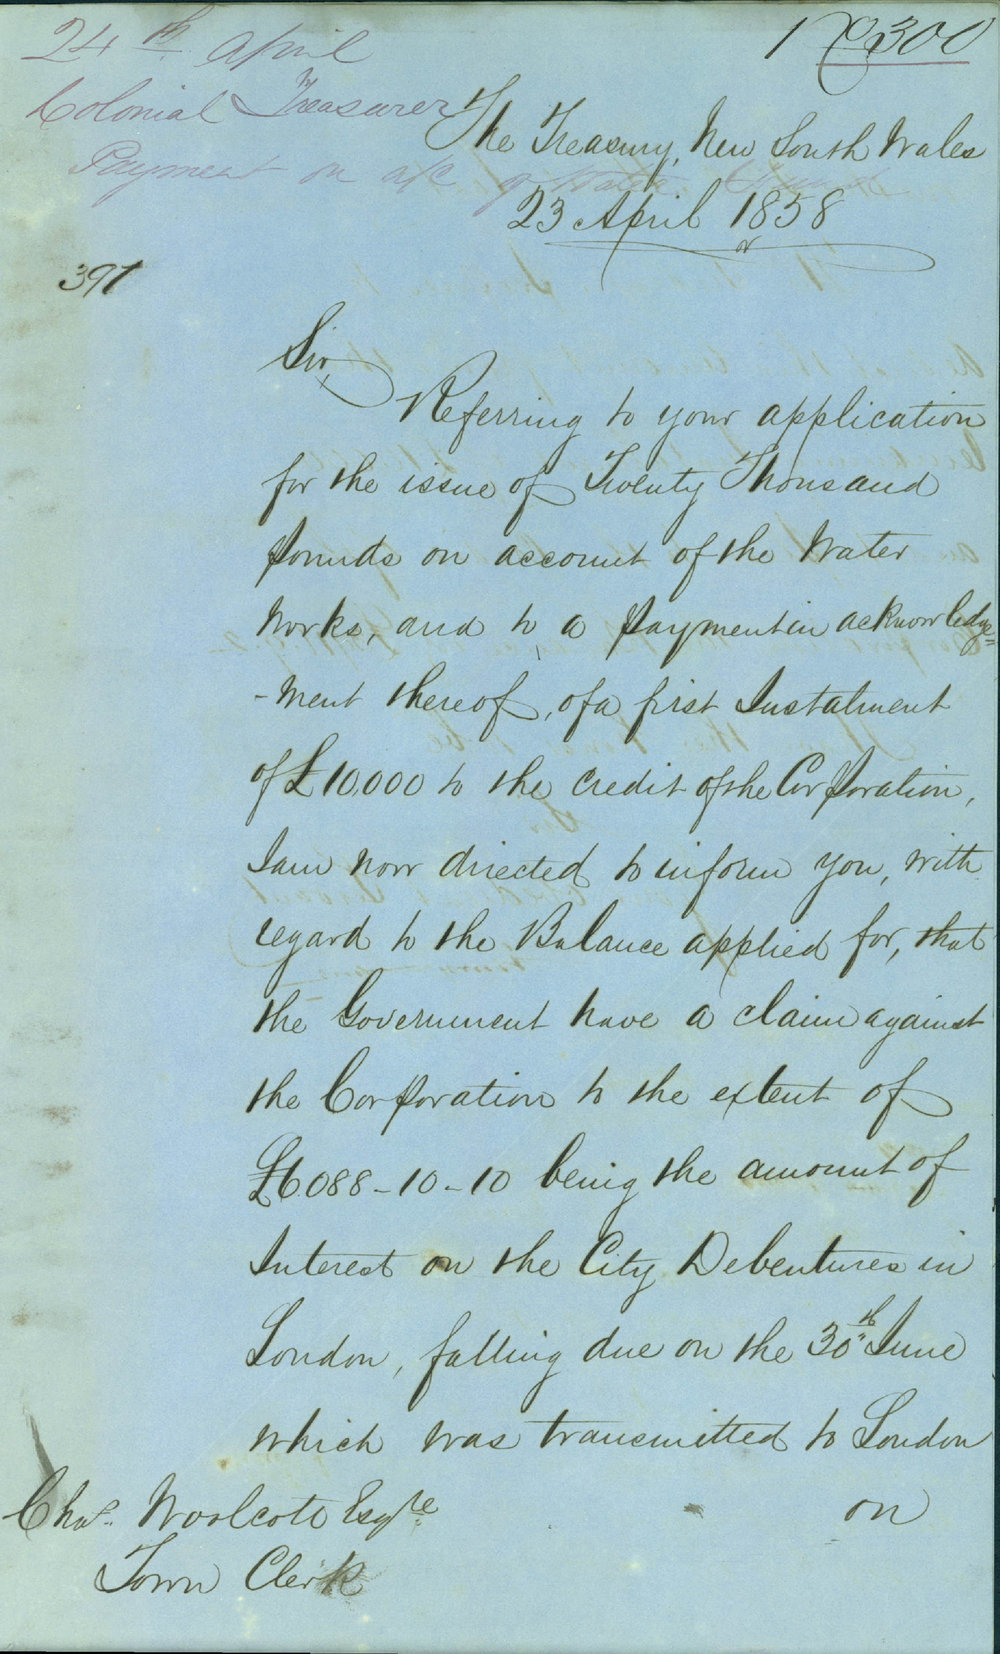 24th April
Colonial Treasurer
Payment on a/c of Water
1 No 300
The Treasury, New South Wales
23 April 1858
391
Sir,
Referring to your application
for the issue of Twenty Thousand
pounds on account of the Water
Works, and to a payment in acknowledge=
-ment thereof, of a first Instalment
of £10,000 to the credit of the Corporation,
I am now directed to inform you, with
regard to the Balance applied for, that
the Government have a claim against
the Corporation to the extent of
£6088-10-10 being the amount of
Interest on the City Debentures in
London, falling due on the 30th June
which was transmitted to London
on
Chas. Woolcott Esqre
Town Clerk